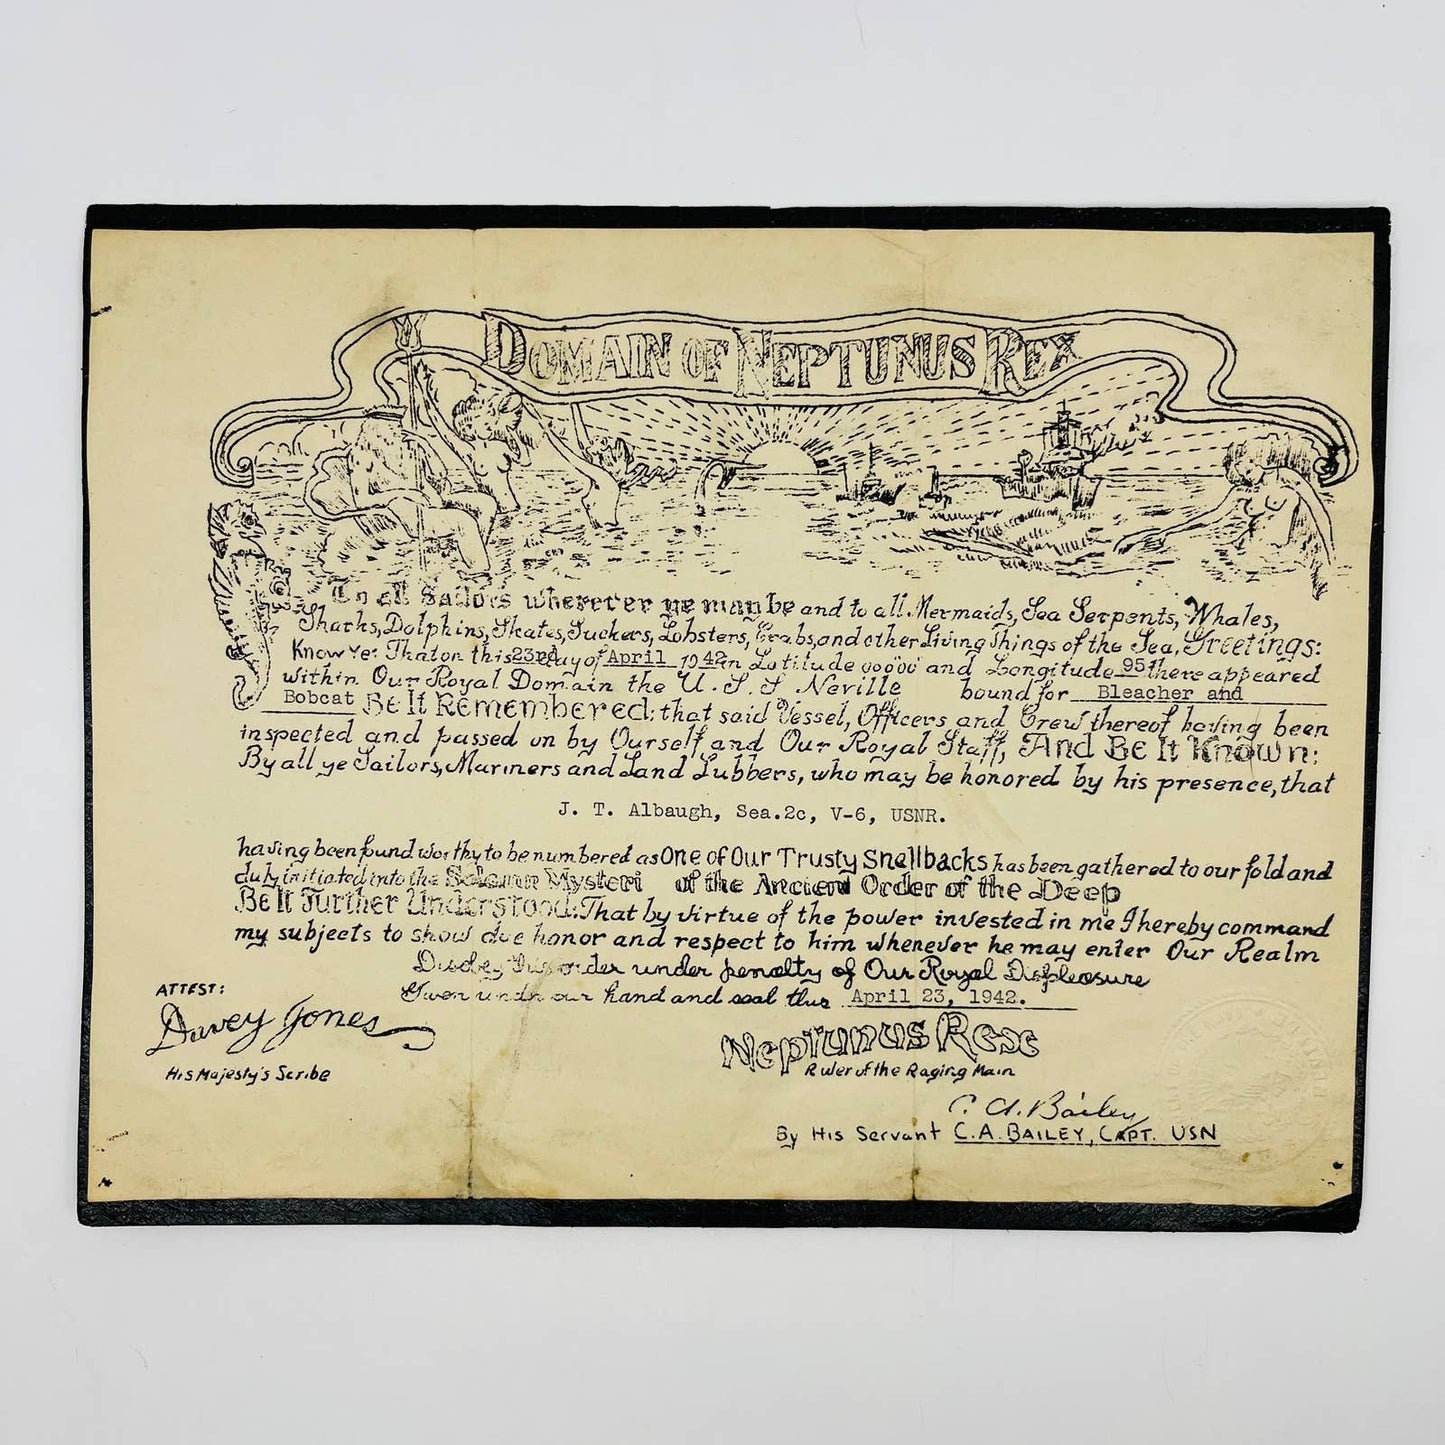 DOMAIN OF NEPTUNUS REX
To all Sailors wherever ye may be and to all Mermaids, Sea Serpents, Whales,
Sharks, Dolphins, Skates, Suckers, Lobsters, Crabs, and other Living Things of the Sea, Greetings:
Know Ye: That on this 23rd day of April 1942 in Latitude 00°00' and Longitude 95° there appeared
within Our Royal Domain the U.S.S Neville bound for Bleacher and
Bobcat Be It Remembered: that said Vessel, Officers and Crew thereof having been
inspected and passed on by Ourself and Our Royal Staff, And Be It Known:
By all ye Sailors, Mariners and Land Lubbers, who may be honored by his presence, that
J. T. Albaugh, Sea.2c, V-6, USNR.
having been found worthy to be numbered as One of Our Trusty Snellbacks has been gathered to our fold and
duly initiated into the Solemn Mysteri of the Ancient Order of the Deep
Be It Further Understood: That by virtue of the power invested in me I hereby command
my subjects to show due honor and respect to him whenever he may enter Our Realm
Disobey this order under penalty of Our Royal Displeasure
Given undr our hand and seal this April 23, 1942.
ATTEST:
Davey Jones
His Majesty's Scribe
Neptunus Rex
Ruler of the Raging Main
C. A. Bailey
By His Servant C.A. BAILEY, CAPT. USN